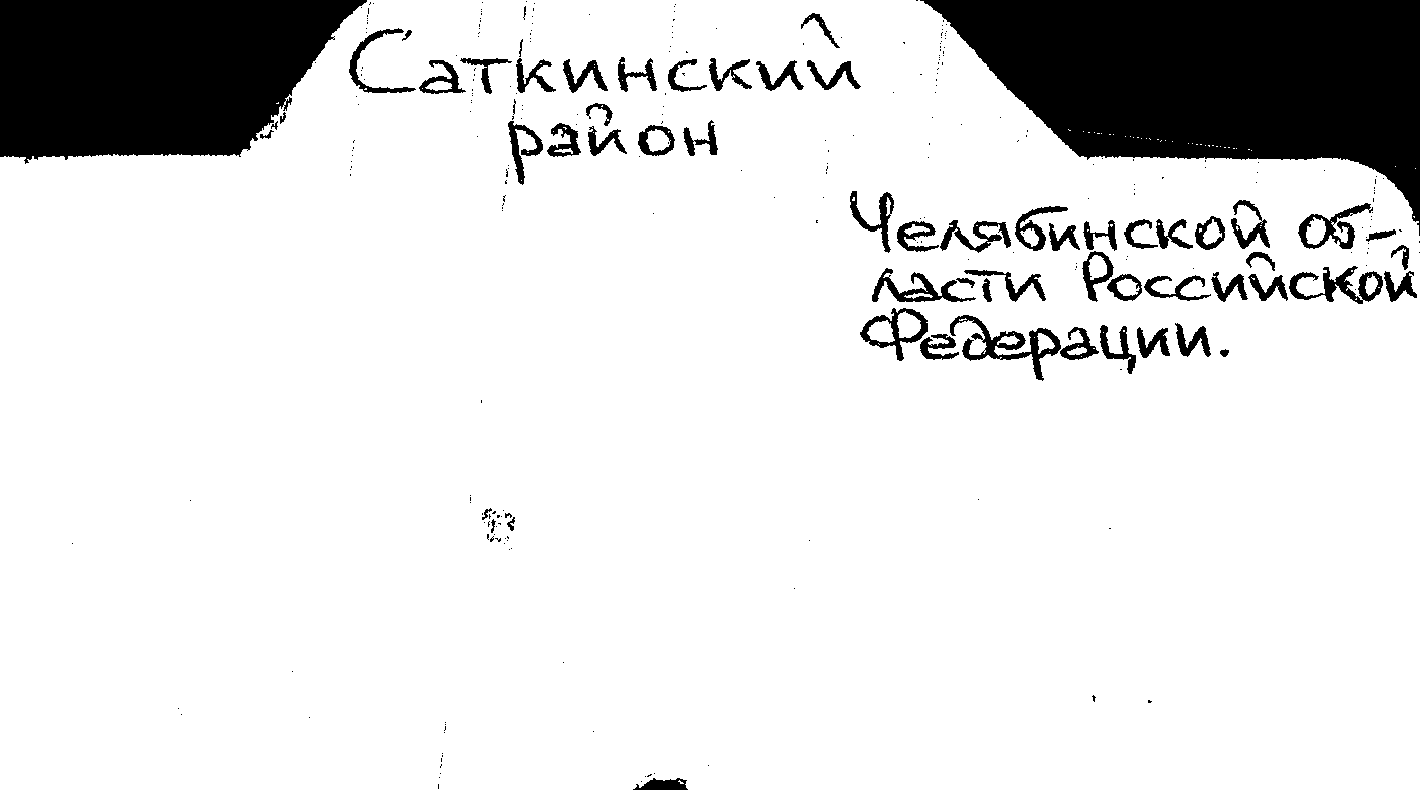 Саткинский
район
Челябинской об-
ласти Российской
Федерации.